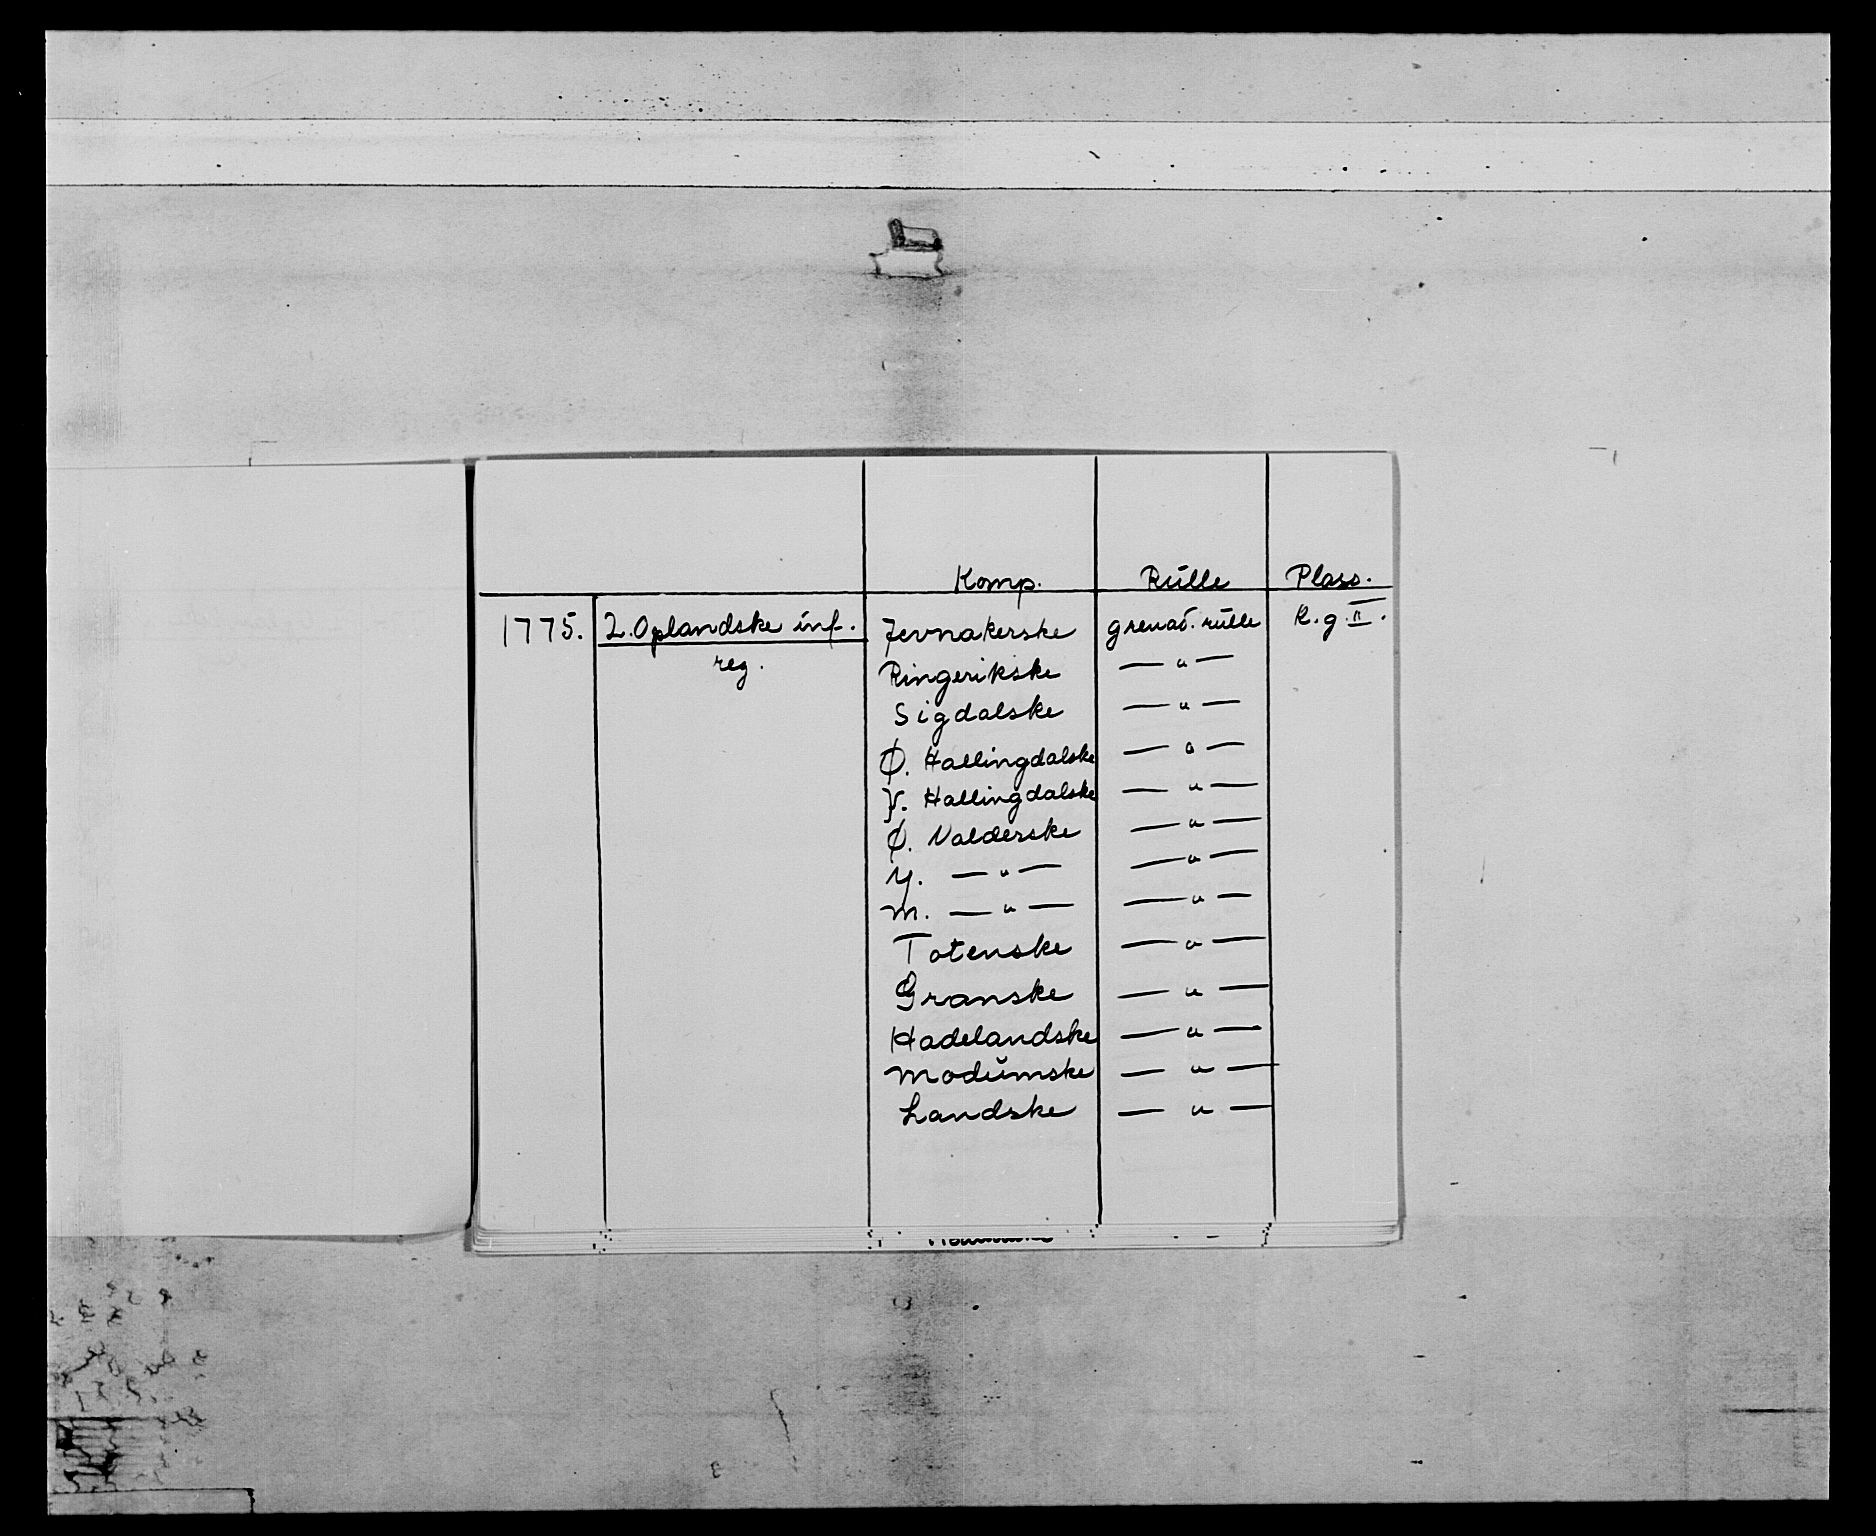 Komp. Rulle Plass.
1775. 2. Oplandske inf. Jevnakerske grenad. rulle K.g. II.
reg. Ringerikske — " —
Sigdalske — " —
Ø. Hallingdalske — " —
Y. Hallingdalske — " —
Ø. Valderske — " —
Y. — " — — " —
M. — " — — " —
Totenske — " —
Granske — " —
Hadelandske — " —
Modumske — " —
Landske — " —